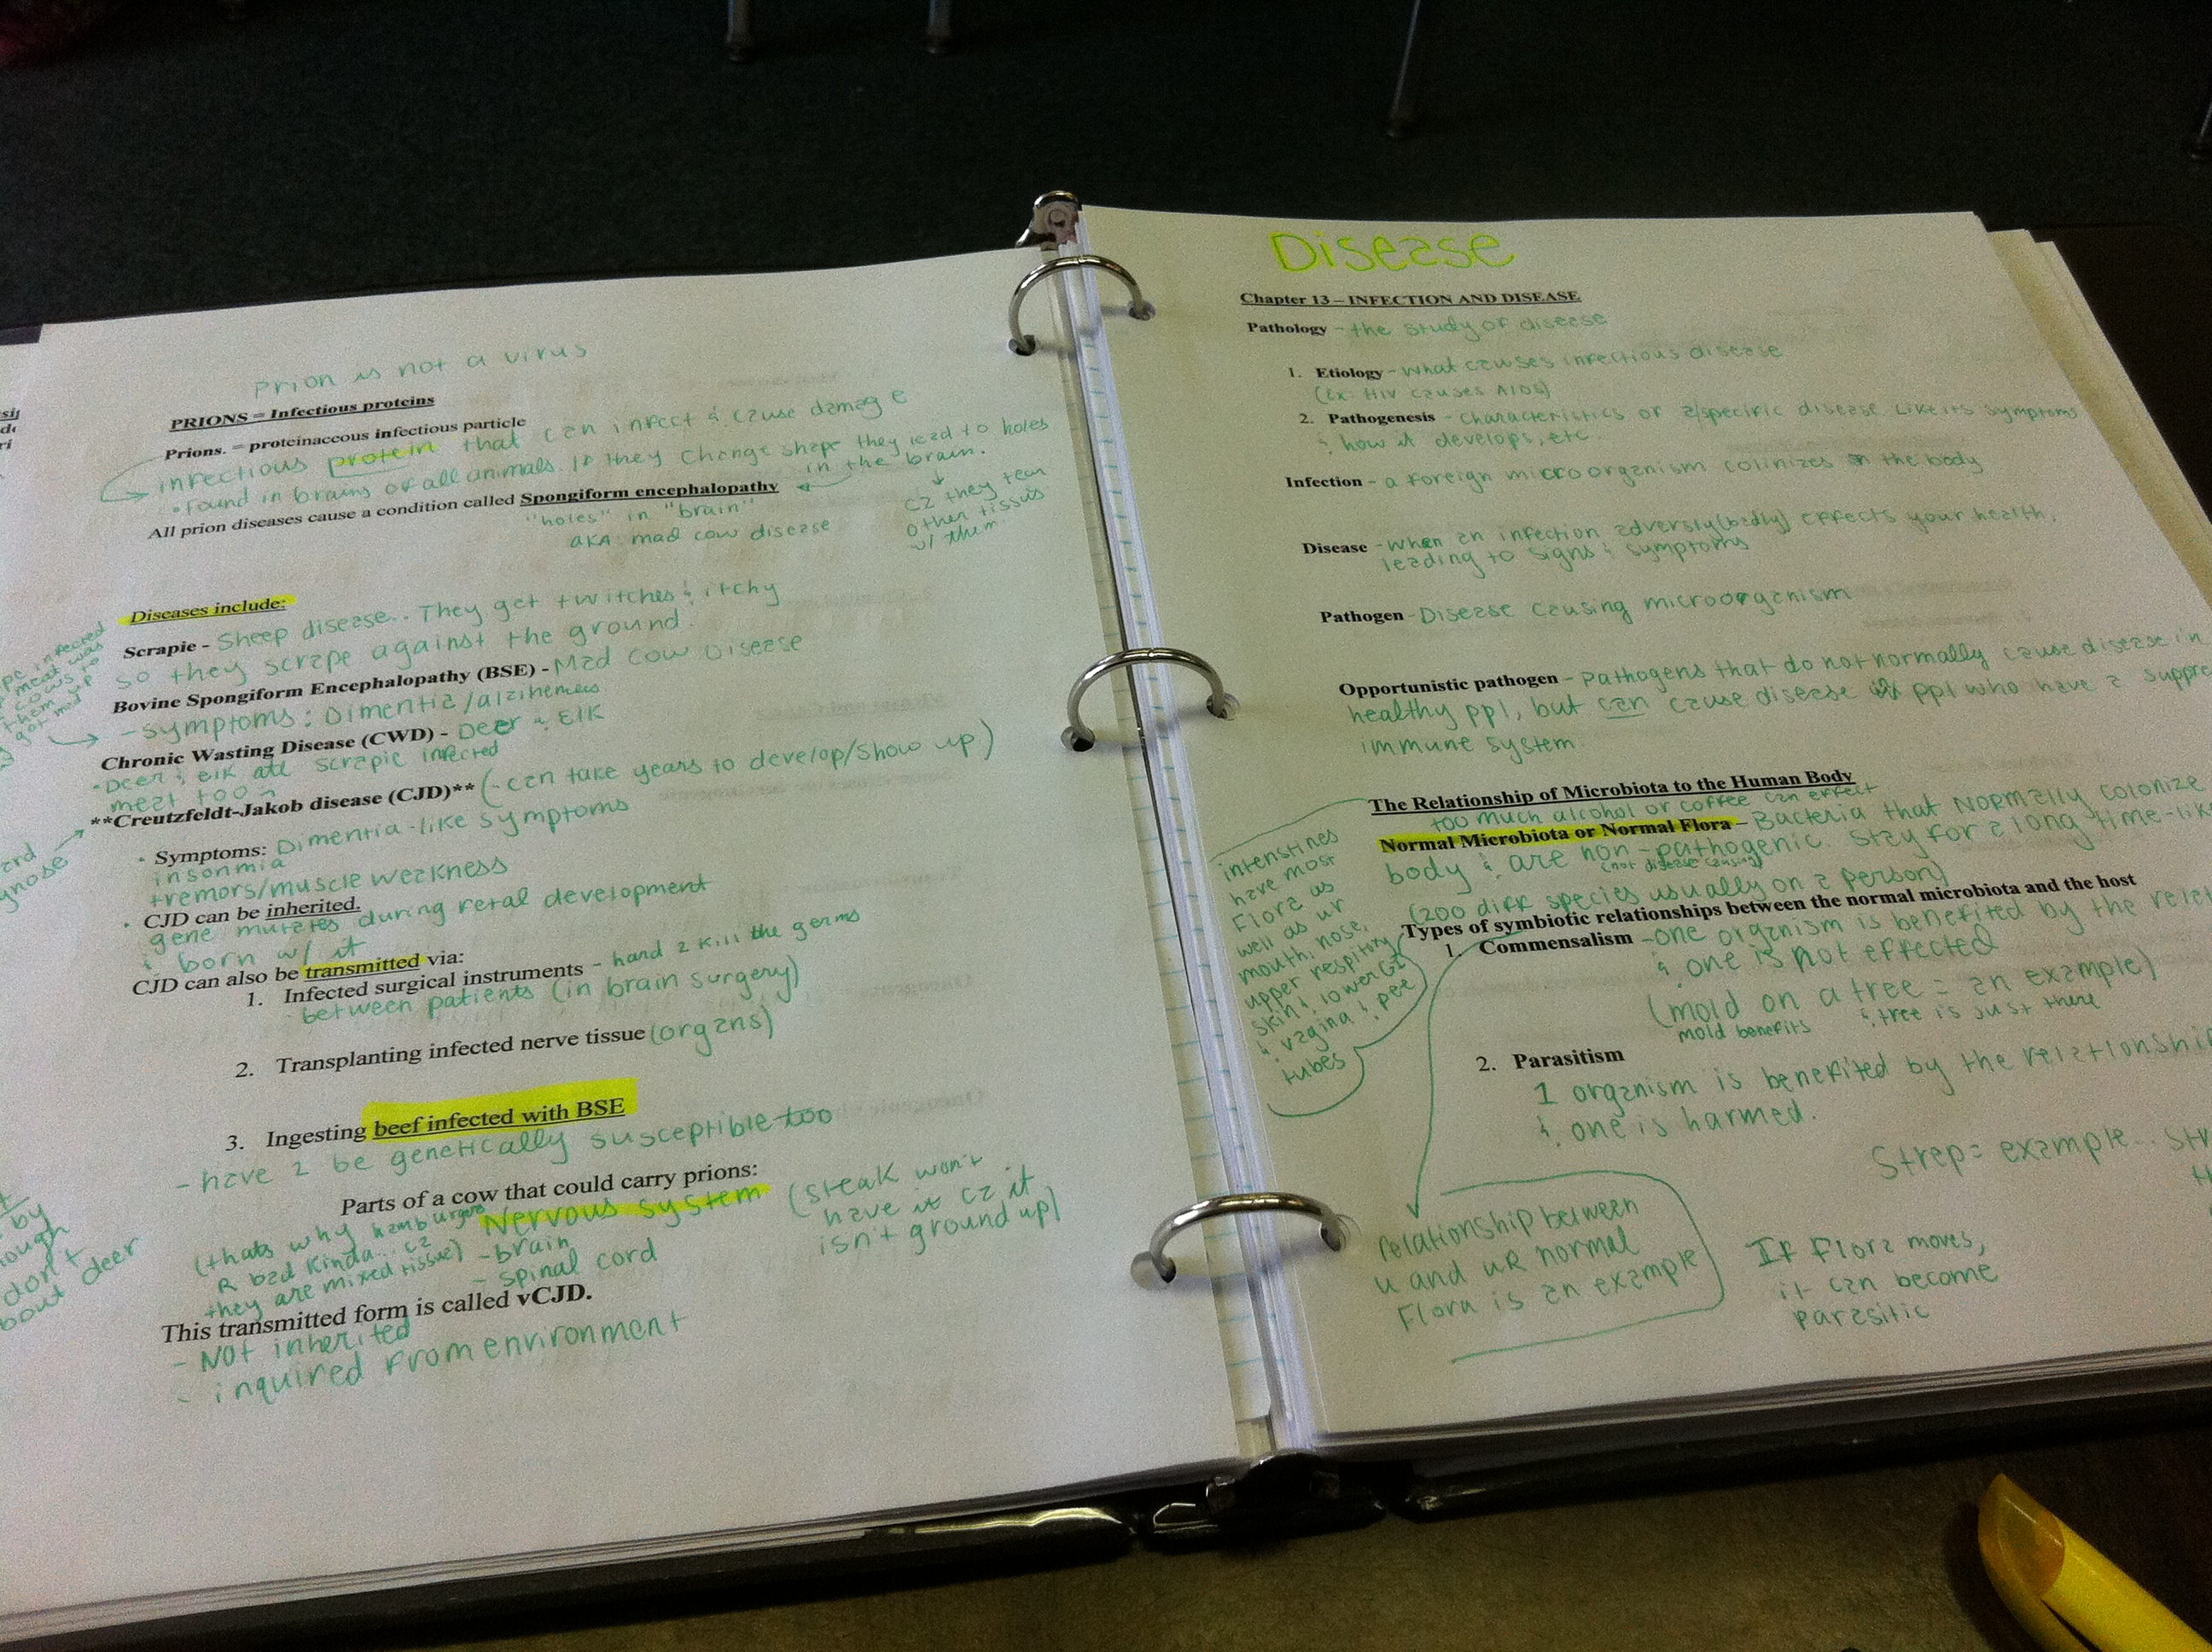 Prion is not a virus
PRIONS = Infectious proteins
Prions. = proteinaceous infectious particle
infectious protein that can infect & cause damage
• Found in brains of all animals. If they change shape they lead to holes
in the brain.
All prion diseases cause a condition called Spongiform encephalopathy
"holes" in "brain"
AKA: mad cow disease
cz they tear
other tissue
w/ them
Diseases include:
Scrapie - Sheep disease.. They get twitches & itchy
so they scrape against the ground.
Bovine Spongiform Encephalopathy (BSE) - Mad Cow Disease
- symptoms: Dimentia/alzihemers
Chronic Wasting Disease (CWD) - Deer & Elk
• Deer & elk ate scrapie infected
meat too
**Creutzfeldt-Jakob disease (CJD)** (- can take years to develop/show up)
• Symptoms: Dimentia-like symptoms
insonmia
tremors/muscle weakness
• CJD can be inherited.
gene mutates during fetal development
& born w/ it
CJD can also be transmitted via:
1. Infected surgical instruments - hard 2 kill the germs
between patients (in brain surgery)
2. Transplanting infected nerve tissue (organs)
3. Ingesting beef infected with BSE
- have 2 be genetically susceptible too
Parts of a cow that could carry prions:
Nervous system
- brain
- spinal cord
(thats why hamburgers
R bad kinda... cz
they are mixed tissue)
(steak won't
have it cz it
isn't ground up)
This transmitted form is called vCJD.
- Not inherited
- inquired from environment
infected
meat was
cows to
them up
got mad
by
don't
bout deer
Disease
Chapter 13 – INFECTION AND DISEASE
Pathology - the study of disease
1. Etiology - what causes infectious disease
(ex: HIV causes AIDS)
2. Pathogenesis - characteristics of a/specific disease like its symptoms
& how it develops, etc.
Infection - a foreign microorganism colinizes in the body
Disease - when an infection adversly (badly) effects your health,
leading to signs & symptoms
Pathogen - Disease causing microorganism
Opportunistic pathogen - pathogens that do not normally cause disease in
healthy ppl, but can cause disease in ppl who have a suppre
immune system.
The Relationship of Microbiota to the Human Body
too much alcohol or coffee can effect
Normal Microbiota or Normal Flora - Bacteria that NORMALLY colonize
body & are non-pathogenic. Stay for a long time-
(not disease causing)
(200 diff species usually on a person)
Types of symbiotic relationships between the normal microbiota and the host
1. Commensalism - one organism is benefited by the
& one is not effected
(mold on a tree = an example)
mold benefits & tree is just there
2. Parasitism
1 organism is benefited by the relationship
& one is harmed.
Strep = example...
intenstines
have most
Flora as
well as ur
mouth, nose,
upper respitory
skin & lower GI
& vagina & pee
tubes
relationship between
u and uR normal
Flora is an example
If Flora moves,
it can become
parasitic